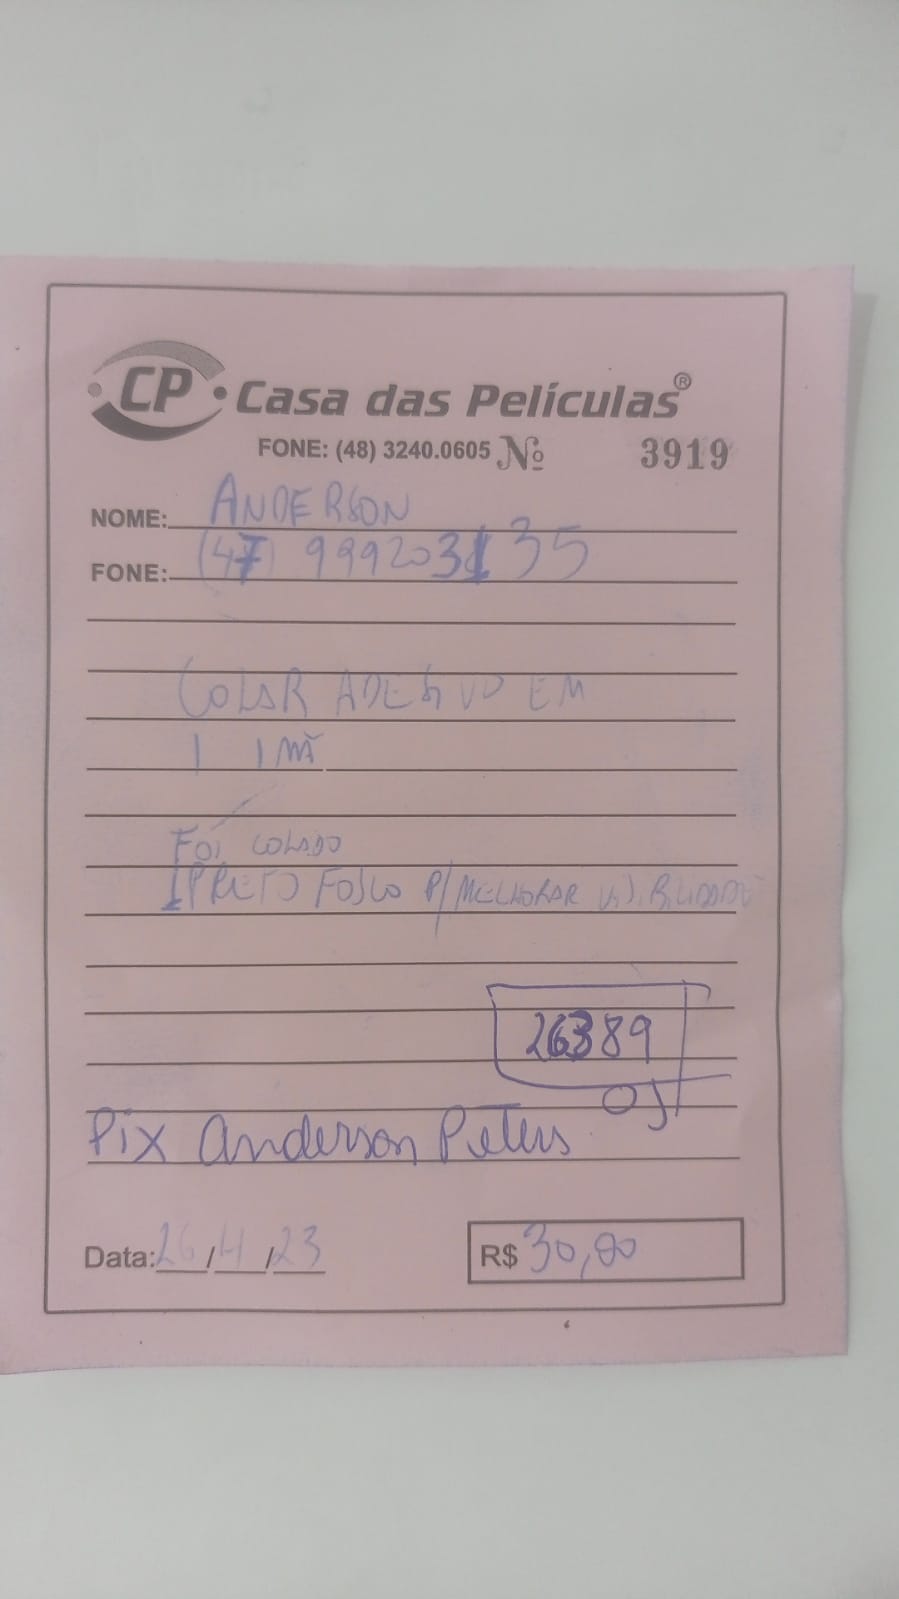 CP Casa das Películas®
FONE: (48) 3240.0605 Nº 3919
NOME: ANDERSON
FONE: (47) 999203135
COLAR ADESIVO EM
1 IMÃ
FOI COLADO
1 PRETO FOSCO P/ MELHORAR VISIBILIDADE
26389
OJ
Pix Anderson Peters
Data: 26/4/23 R$ 30,00